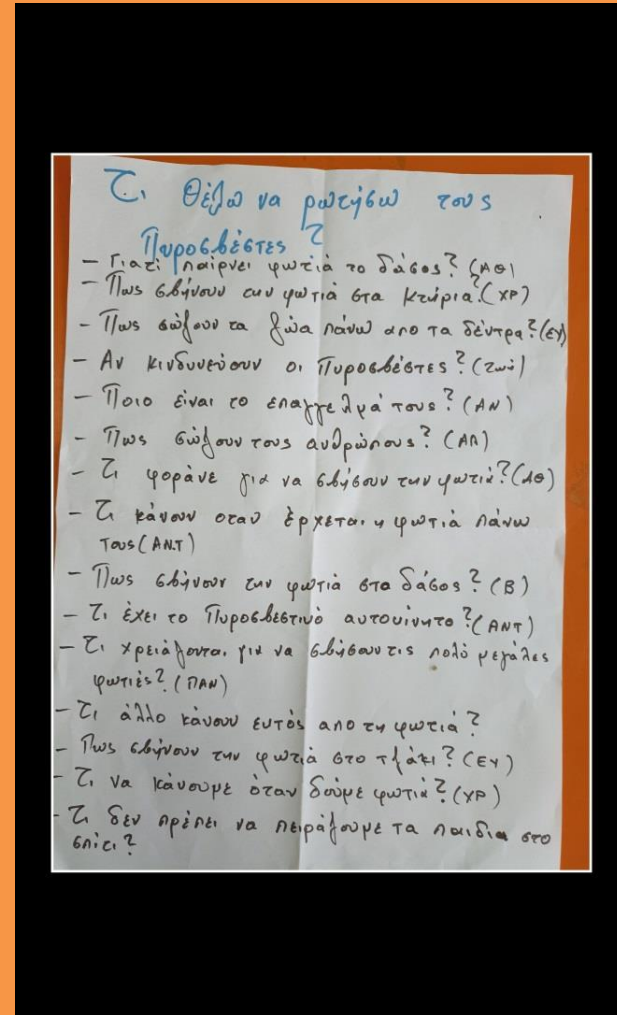 Τι θέλω να ρωτήσω τους
Πυροσβέστες?
- Γιατί παίρνει φωτιά το δάσος? (ΑΘ)
- Πως σβήνουν την φωτιά στα κτήρια? (ΧΡ)
- Πως σώζουν τα ζώα πάνω απο τα δέντρα? (ΕΥ)
- Αν κινδυνεύουν οι Πυροσβέστες? (Ζωή)
- Ποιο είναι το επαγγελμά τους? (ΑΝ)
- Πως σώζουν τους ανθρώπους? (ΑΠ)
- Τι φοράνε για να σβήσουν την φωτιά? (ΑΘ)
- Τι κάνουν οταν έρχεται η φωτιά πάνω
τους (ΑΝ.Τ)
- Πως σβήνουν την φωτιά στο δάσος? (Β)
- Τι έχει το Πυροσβεστικό αυτοκίνητο? (ΑΝΤ)
- Τι χρειάζονται για να σβήσουν τις πολύ μεγάλες
φωτιές? (ΠΑΝ)
- Τι άλλο κάνουν εκτός απο τη φωτιά?
- Πως σβήνουν την φωτιά στο τζάκι? (ΕΥ)
- Τι να κάνουμε όταν δούμε φωτιά? (ΧΡ)
- Τι δεν πρέπει να πειράζουμε τα παιδια στο
σπίτι?